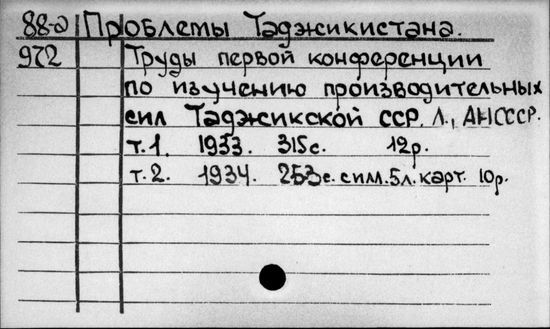 88-а Проблемы Таджикистана.
972 Труды первой конференции
по изучению производительных
сил Таджикской ССР. Л., АНСССР.
т.1. 1933. 315с. 12р.
т.2. 1934. 253с. сим. 5л. карт. 10р.